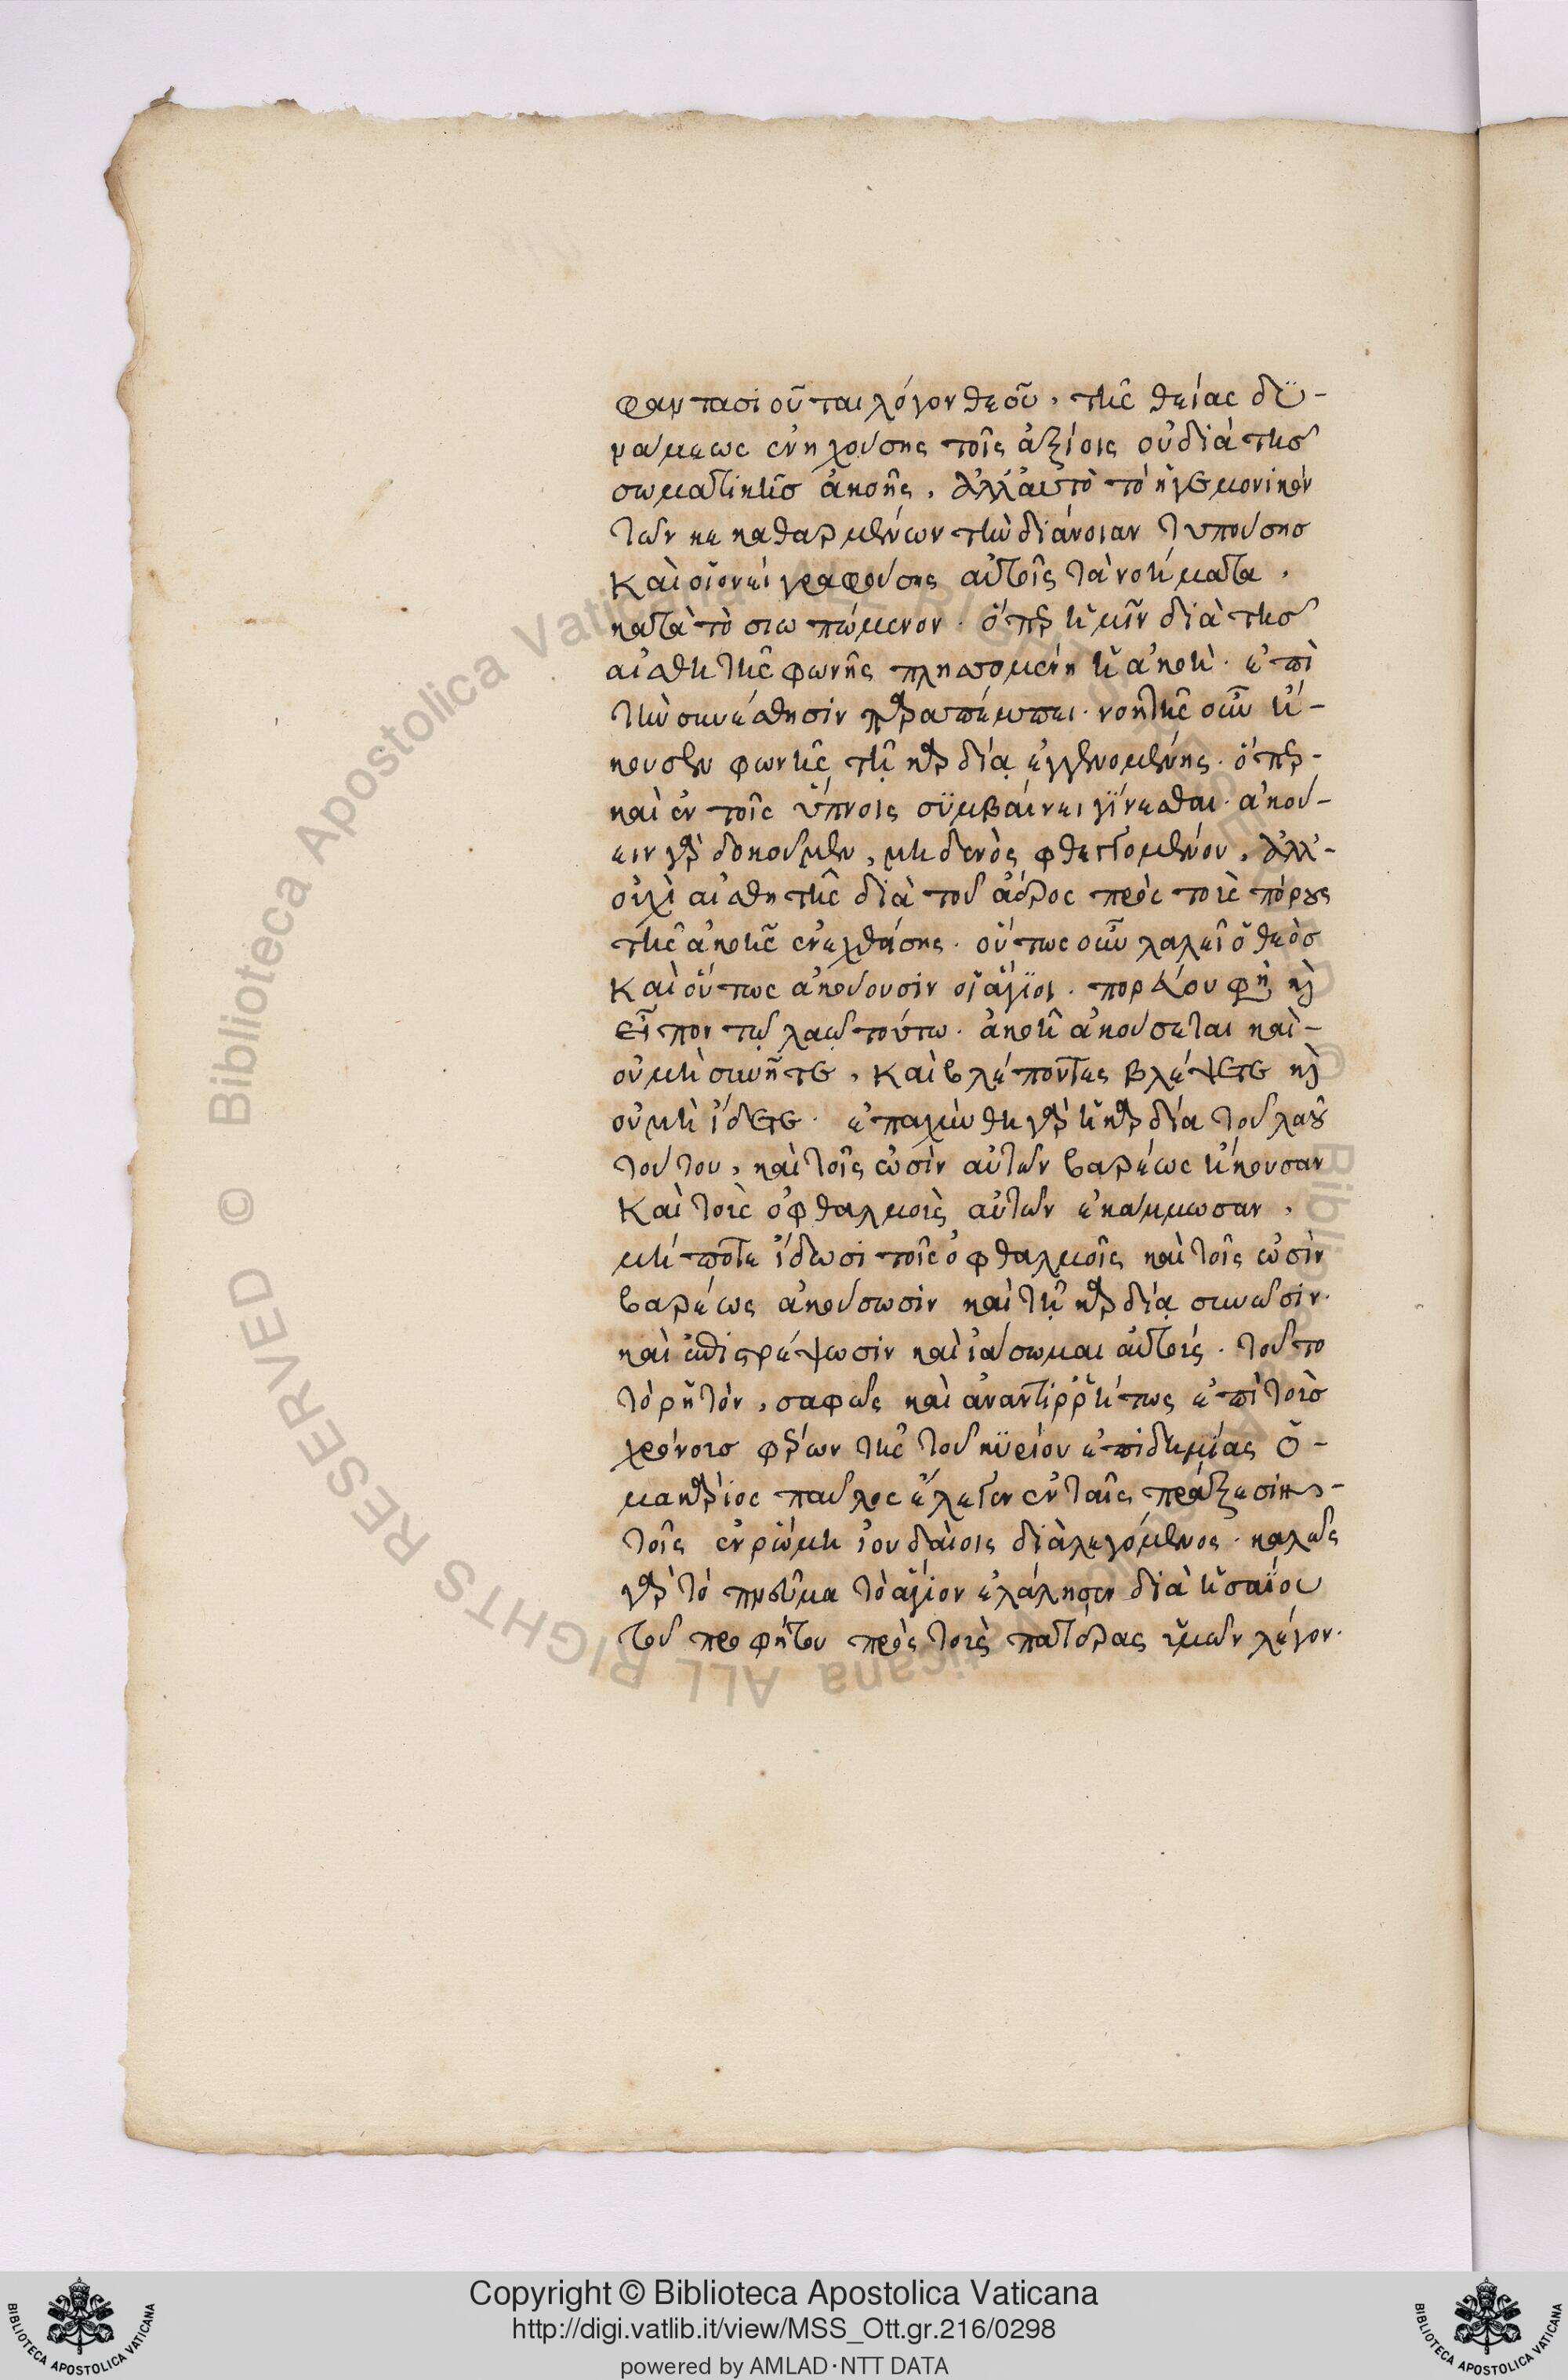 φαντασιοῦται λόγον θεοῦ, τῆς θείας δυ-
νάμεως ἐνηχούσης τοῖς ἀξίοις οὐ διὰ τῆς
σωματικῆς ἀκοῆς, ἀλλ' αὐτὸ τὸ ἡγεμονικὸν
τῶν κεκαθαρμένων τὴν διάνοιαν τυπούσης
Καὶ οἱονεὶ γραφούσης αὐτοῖς τὰ νοήματα,
κατὰ τὸ σιωπώμενον. ὅπερ ἡμῖν διὰ τῆς
αἰσθητῆς φωνῆς πλησσομένη ἡ ἀκοὴ. ἐπὶ
τὴν συνέσθησιν παραπέμπει. νοητῆς οὖν ἤ-
κουσεν φωνῆς τῇ καρδίᾳ ἐγγενομένης. ὅπερ-
καὶ ἐν τοῖς ὕπνοις συμβαίνει γίνεσθαι. ἀκού-
ειν γὰρ δοκοῦμεν, μηδενὸς φθεγγομένου, ἀλλ'-
οὐχὶ αἰσθητῆς διὰ τοῦ ἀέρος πρὸς τοὺς πόρους
τῆς ἀκοῆς ἐνεχθείσης. οὕτως οὖν λαλεῖ ὁ θεὸς
Καὶ οὕτως ἀκούουσιν οἱ ἅγιοι. πορεύου φησὶ καὶ
εἶπον τῷ λαῷ τούτω. ἀκοῆ ἀκούσεται καὶ-
οὐ μὴ συνῆτε, Καὶ βλέποντες βλέψετε καὶ
οὐ μὴ ἴδετε. ἐπαχύνθη γὰρ ἡ καρδία τοῦ λαοῦ
τούτου, καὶ τοῖς ὠσὶν αὐτῶν βαρέως ἤκουσαν
Καὶ τοὺς ὀφθαλμοὺς αὐτῶν ἐκάμμωσαν,
μήποτε ἴδωσι τοῖς ὀφθαλμοῖς καὶ τοῖς ὠσὶν
βαρέως ἀκούσωσιν καὶ τῇ καρδίᾳ συνῶσιν.
καὶ ἐπιστρέψωσιν καὶ ἰάσωμαι αὐτοὺς. τοῦτο
τὸ ῥητὸν, σαφῶς καὶ ἀναντιρρήτως ἐπὶ τοὺς
χρόνους φέρων τῆς τοῦ κυρίου ἐπιδημίας ὁ-
μακάριος παῦλος ἔλεγεν ἐν ταῖς πράξεσιν-
τοῖς ἐν ῥώμη ἰουδαίοις διαλεγόμενος. καλῶς
γὰρ τὸ πνεῦμα τὸ ἅγιον ἐλάλησεν διὰ ἡσαΐου
τοῦ προφήτου πρὸς τοὺς πατέρας ἡμῶν λέγον.
Copyright © Biblioteca Apostolica Vaticana
http://digi.vatlib.it/view/MSS_Ott.gr.216/0298
powered by AMLAD·NTT DATA
BIBLIOTECA APOSTOLICA VATICANA
BIBLIOTECA APOSTOLICA VATICANA
© Biblioteca Apostolica Vaticana ALL RIGHTS RESERVED © Biblioteca Apostolica Vaticana ALL RIGHTS RESERVED